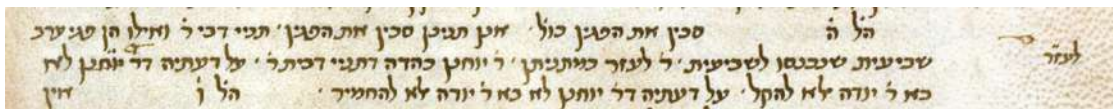 הל׳ ה׳ סכין את הפגין כול׳. אנן תנינן סכין את הפגין. תניי דבי ר׳ ואילו הן פגי ערב
שביעית שנכנסו לשביעית. ר׳ לעזר כמתניתן. ר׳ יוחנן כהדה דתניי דבית ר׳. על דעתיה דר׳ יוחנן לא
לעזר
בא ר׳ יודה אלא להקל. על דעתיה דר׳ יוחנן לא בא ר׳ יודה אלא להחמיר. הל׳ ו׳ אין